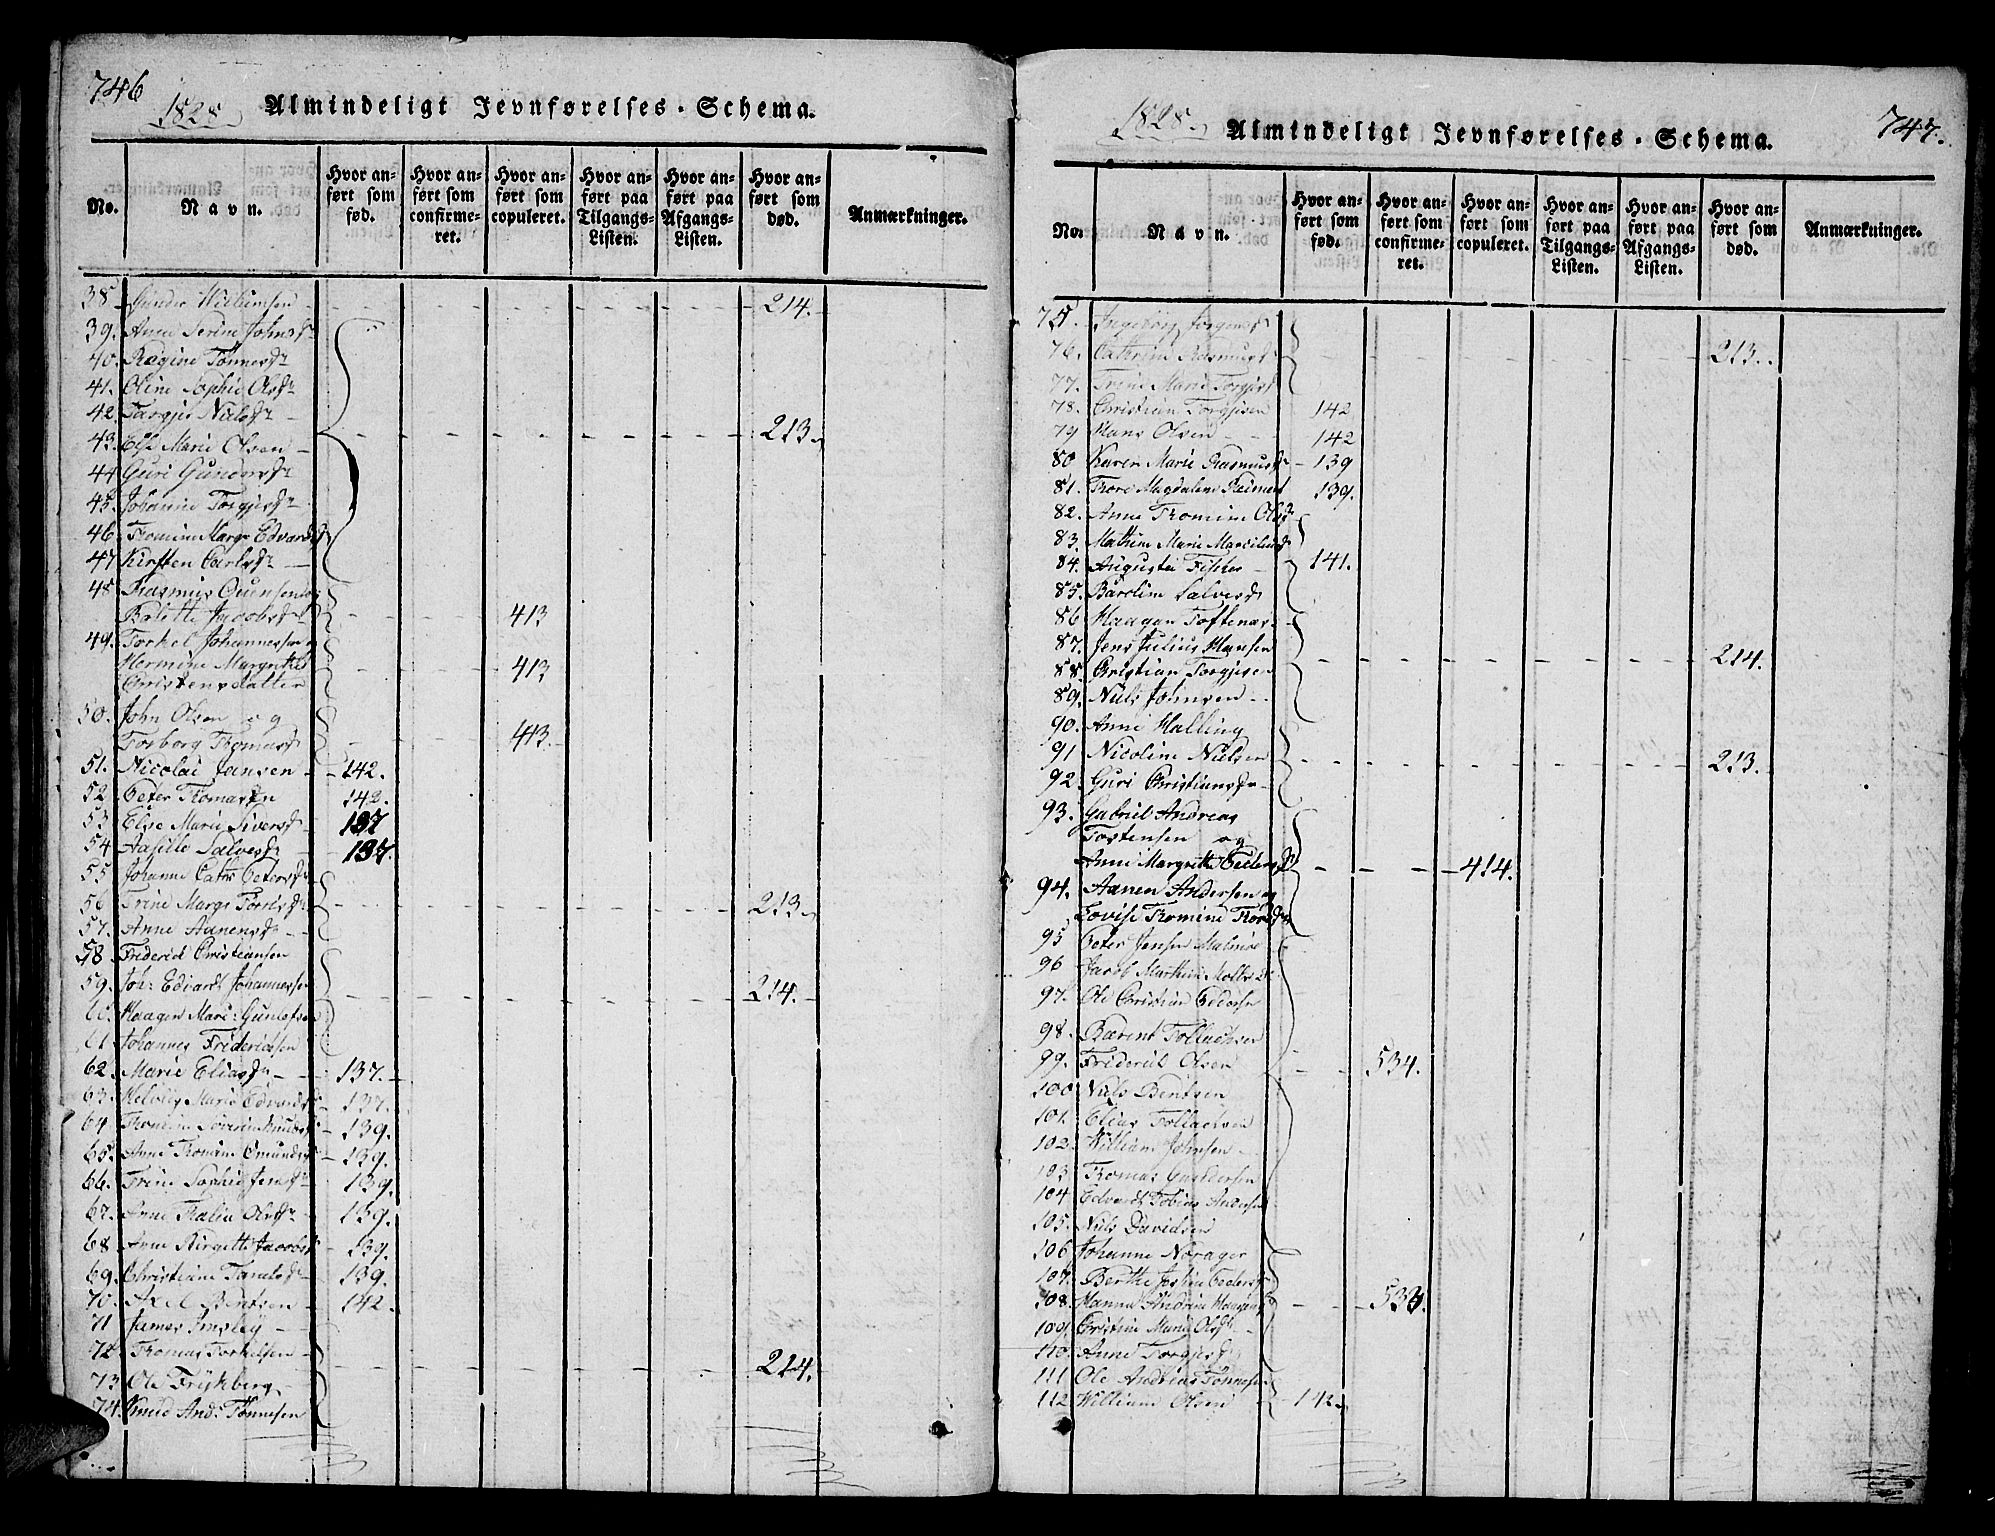 746
1828
Almindeligt Jevnførelses-Schema.
No.
Navn.
Hvor anført som fød.
Hvor anført som confirmeret.
Hvor anført som copuleret.
Hvor anført paa Tilgangs-Listen.
Hvor anført paa Afgangs-Listen.
Hvor anført som død.
Anmærkninger.
38. Gunder Willumsen - 214.
39. Anne Serine Johnsdr
40. Ragine Tønnesdr
41. Oline Sophie Olsdr
42. Targjer Nielsdr
43. Else Marie Olsen - 213.
44 Guri Gundersdr
45. Johanne Torgjersdr
46. Tromine Margr Edvardsdr
47 Kirsten Carlsdr
48 Rasmus Ounsen og
Bolette Jacobsdr - 413
49. Torkel Johannessen og
Hermine Margrethe - 413
Christensdatter
50. John Olsen og
Torborg Thomasdr - 413.
51. Nicolai Jansen - 142.
52 Peter Thomasen 142.
53 Else Marie Siversdr 137
54 Aasille Salvesdr 137.
55 Johanne Cathr Petersdr
56 Trine Margr Torelsdr - 213.
57. Anne Aanensdr
58 Friderich Christiansen
59. Joh: Edvardt Johannessen - 214.
60. Haagen Mari: Gunlefsen
61 Johannes Friderichsen
62. Marie Eliasdr - 137.
63. Helvig Marie Edvardsdr 137.
64 Tromine Severine Knudsdr 139.
65. Anne Tromine Omundsdr 139.
66. Trine Sophie Jensdr 139.
67. Anne Thalia Olsdr 139.
68 Anne Birgitte Jacobsdr 139.
69. Christiane Taraldsdr 139.
70. Axel Bentsen - 142.
71 James Insley
72 Thomas Torkelsen - 214.
73. Ole Frykberg
74. Knud And: Tønnesen
1828.
Almindeligt Jevnførelses-Schema.
747.
No.
Navn.
Hvor anført som fød.
Hvor anført som confirmeret.
Hvor anført som copuleret.
Hvor anført paa Tilgangs-Listen.
Hvor anført paa Afgangs-Listen.
Hvor anført som død.
Anmærkninger.
75. Ingeborg Jørgensdr
76. Cathrine Rasmusdr - 213.
77. Trine Marie Torgjersdr
78. Christian Torgjersen 142
79 Hans Olsen - 142
80 Karen Marie Rasmusdr - 139
81. Thore Magdalene Reimert 139.
82. Anne Tromine Olsdr
83. Mathine Marie Marcelius dr
84. Augusta Fischer - 141.
85. Baroline Salvesdr
86 Haagen Toftenæs
87. Jens Julius Hansen - 214.
88. Christian Torgjersen
89. Niels Johnsen
90. Anne Halling
91 Nicoline Nielsen - 213.
92. Guri Christiansdr
93. Gabriel Andreas
Tostensen og
Anne Margrethe Pedersdr - 414.
94. Aanen Andersen og
Lovise Tromine Thorsdr
95 Peter Jensen Malmøe
96 Jacob Marthin
97. Ole Christian Pedersen
98. Bærent Tollachsen
99. Friderich Olsen - 534.
100. Niels Bentsen
101. Elias Tollachsen
102. William Johnsen
103 Thomas Gundersen
104. Edvardt Tobias Andersen
105. Niels Davidsen
106 Johanne Norager
107. Berthe Josine Pedersdr
108. Hanne Andrine Haagensdr - 533.
109. Christine Marie Olsdr
110. Anne Torgjersdr
111 Ole Andreas Tønnesen
112 William Olsen - 142.